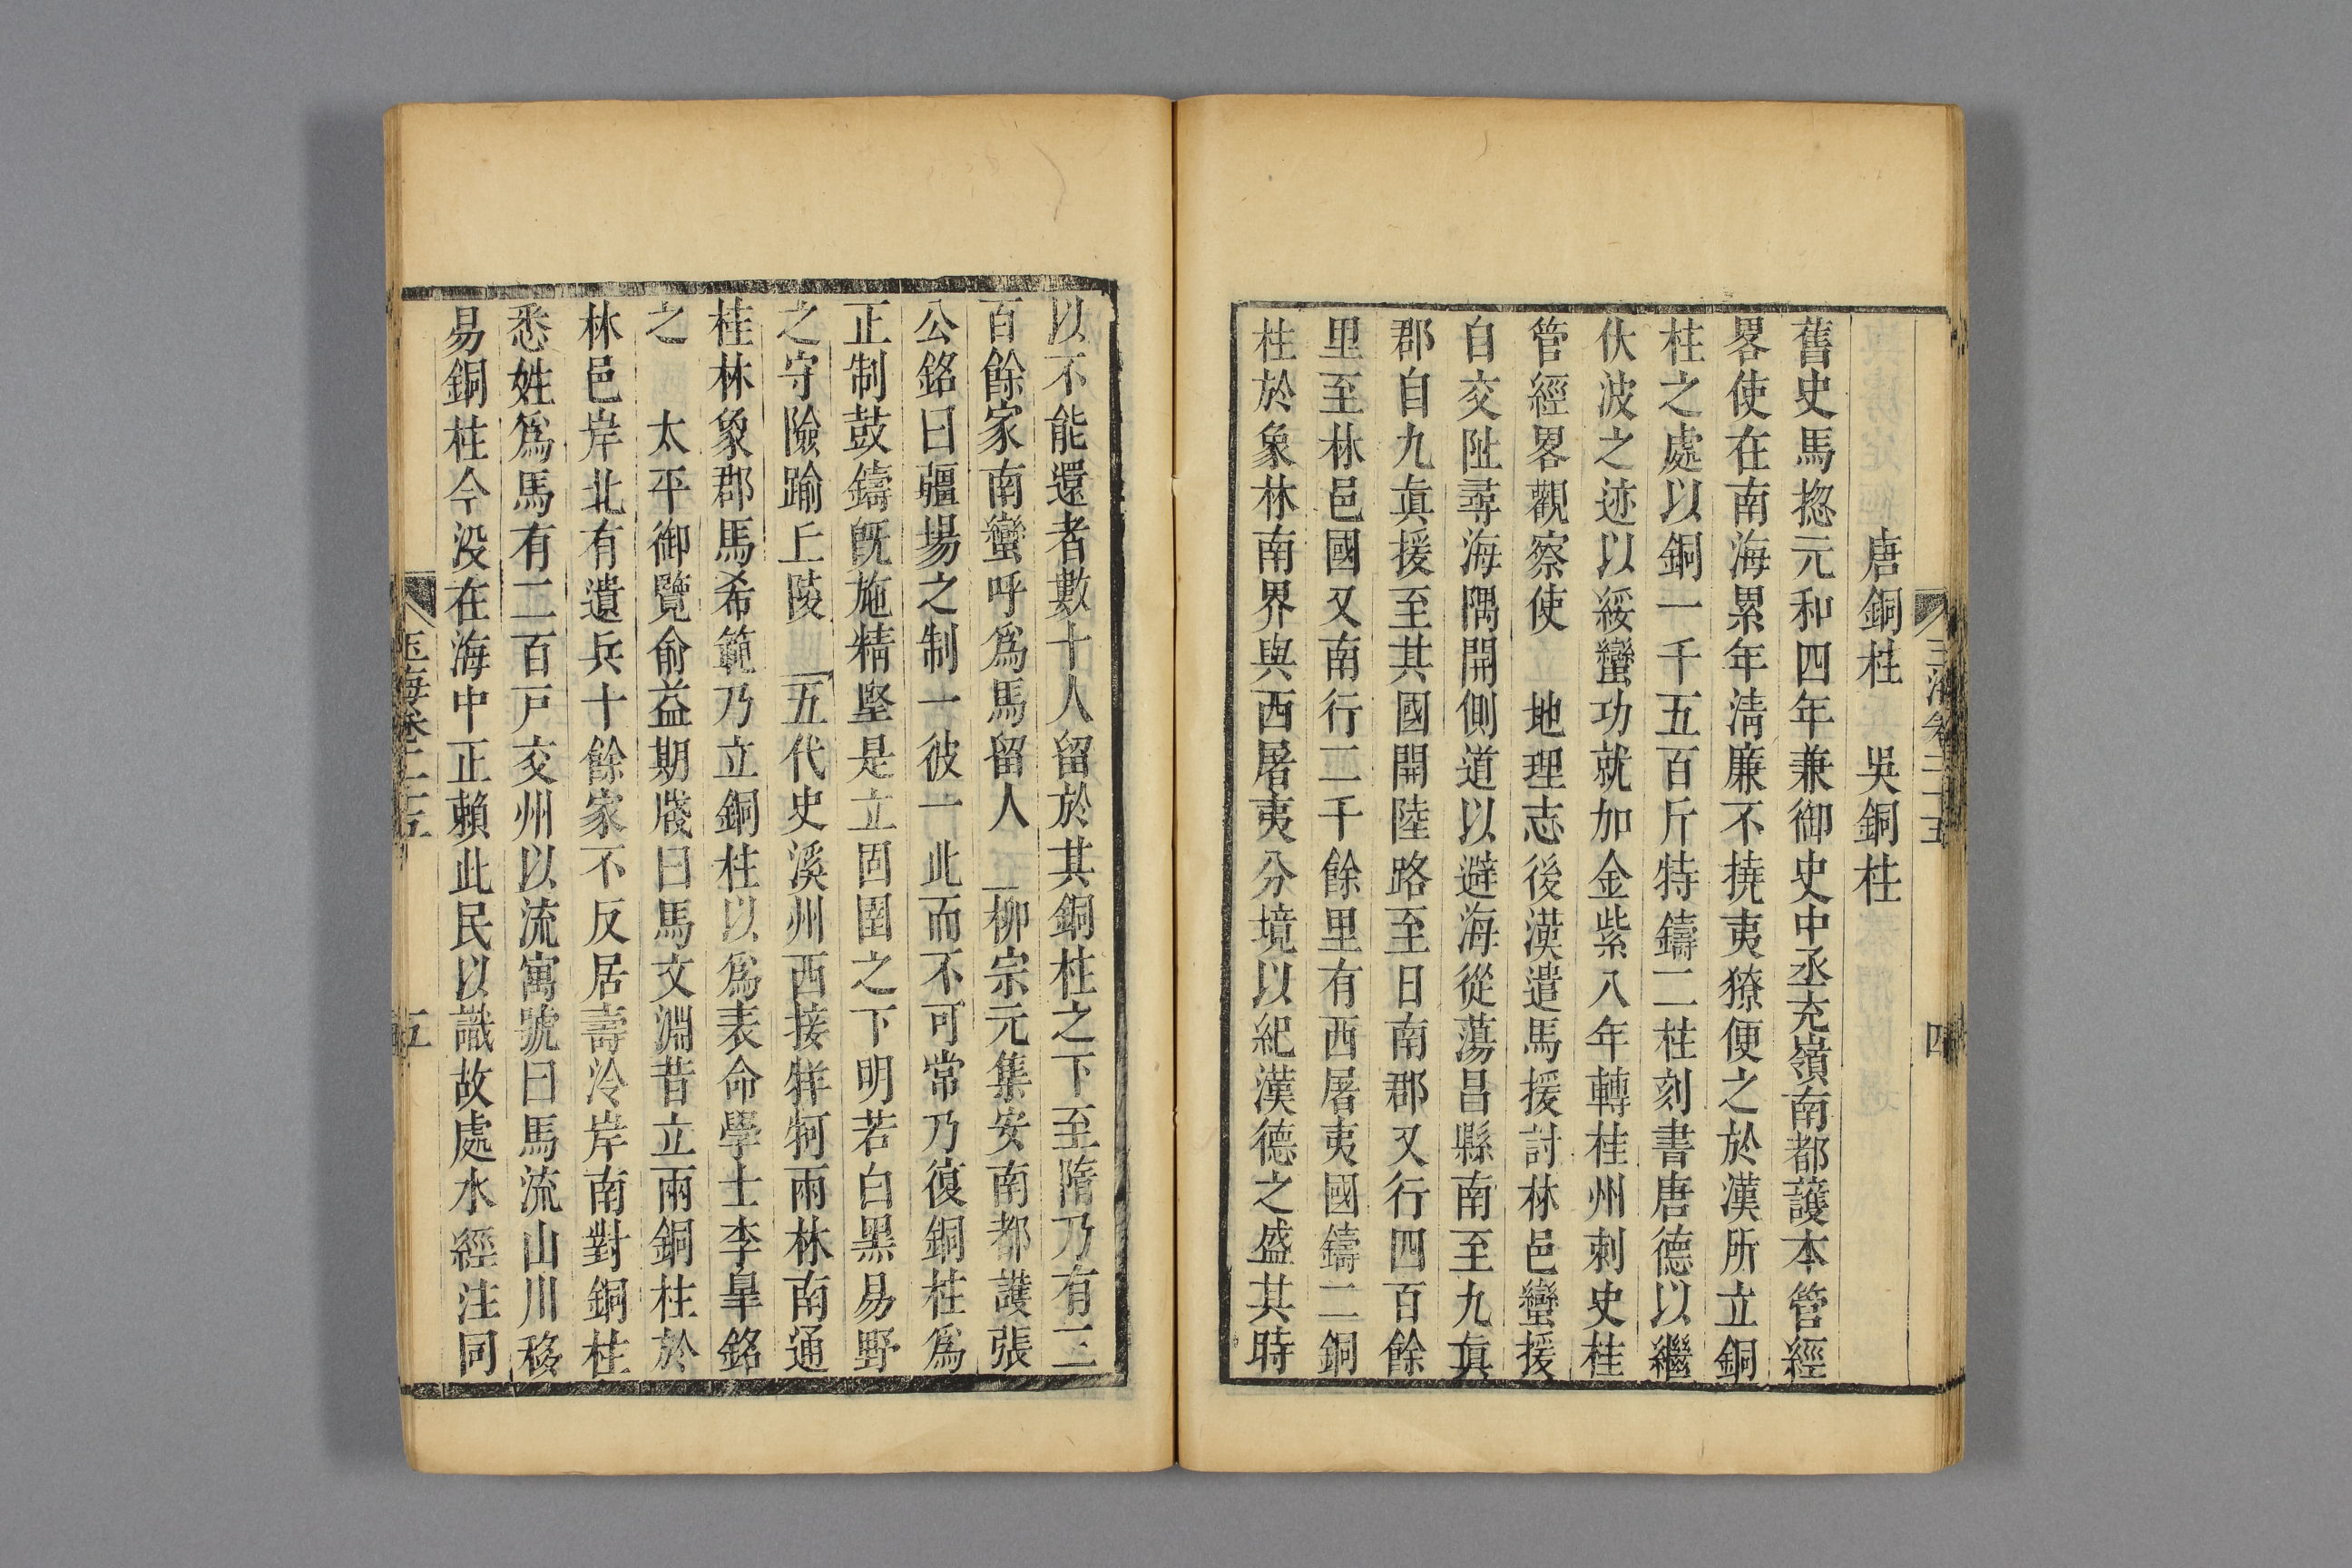 玉海卷二十五
四
唐銅柱 吳銅柱
舊史馬揔元和四年兼御史中丞充嶺南都護本管經
畧使在南海累年淸廉不撓夷獠便之於漢所立銅
柱之處以銅一千五百斤特鑄二柱刻書唐德以繼
伏波之迹以綏蠻功就加金紫八年轉桂州刺史桂
管經畧觀察使 地理志後漢遣馬援討林邑蠻援
自交阯尋海隅開側道以避海從蕩昌縣南至九眞
郡自九眞援至其國開陸路至日南郡又行四百餘
里至林邑國又南行二千餘里有西屠夷國鑄二銅
柱於象林南界與西屠夷分境以紀漢德之盛其時
以不能還者數十人留於其銅柱之下至隋乃有三
百餘家南蠻呼爲馬留人 柳宗元集安南都護張
公銘曰疆場之制一彼一此而不可常乃復銅柱爲
正制鼓鑄旣施精堅是立固圉之下明若白黑易野
之守險踰上陵 五代史溪州西接牂牁兩林南通
桂林象郡馬希範乃立銅柱以爲表命學士李皐銘
之 太平御覽俞益期牋曰馬文淵昔立兩銅柱於
林邑岸北有遺兵十餘家不反居壽泠岸南對銅柱
悉姓爲馬有二百戸交州以流寓號曰馬流山川移
易銅柱今没在海中正賴此民以識故處水經注同
玉海卷二十五
五